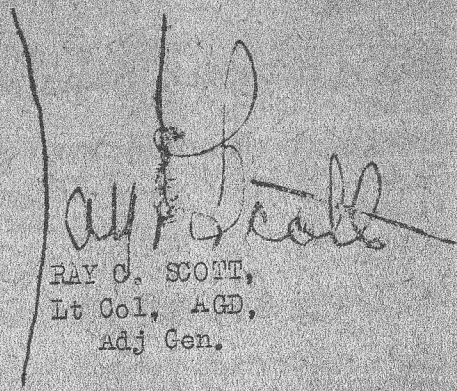 Ray C. Scott
RAY C. SCOTT,
Lt Col, AGD,
Adj Gen.